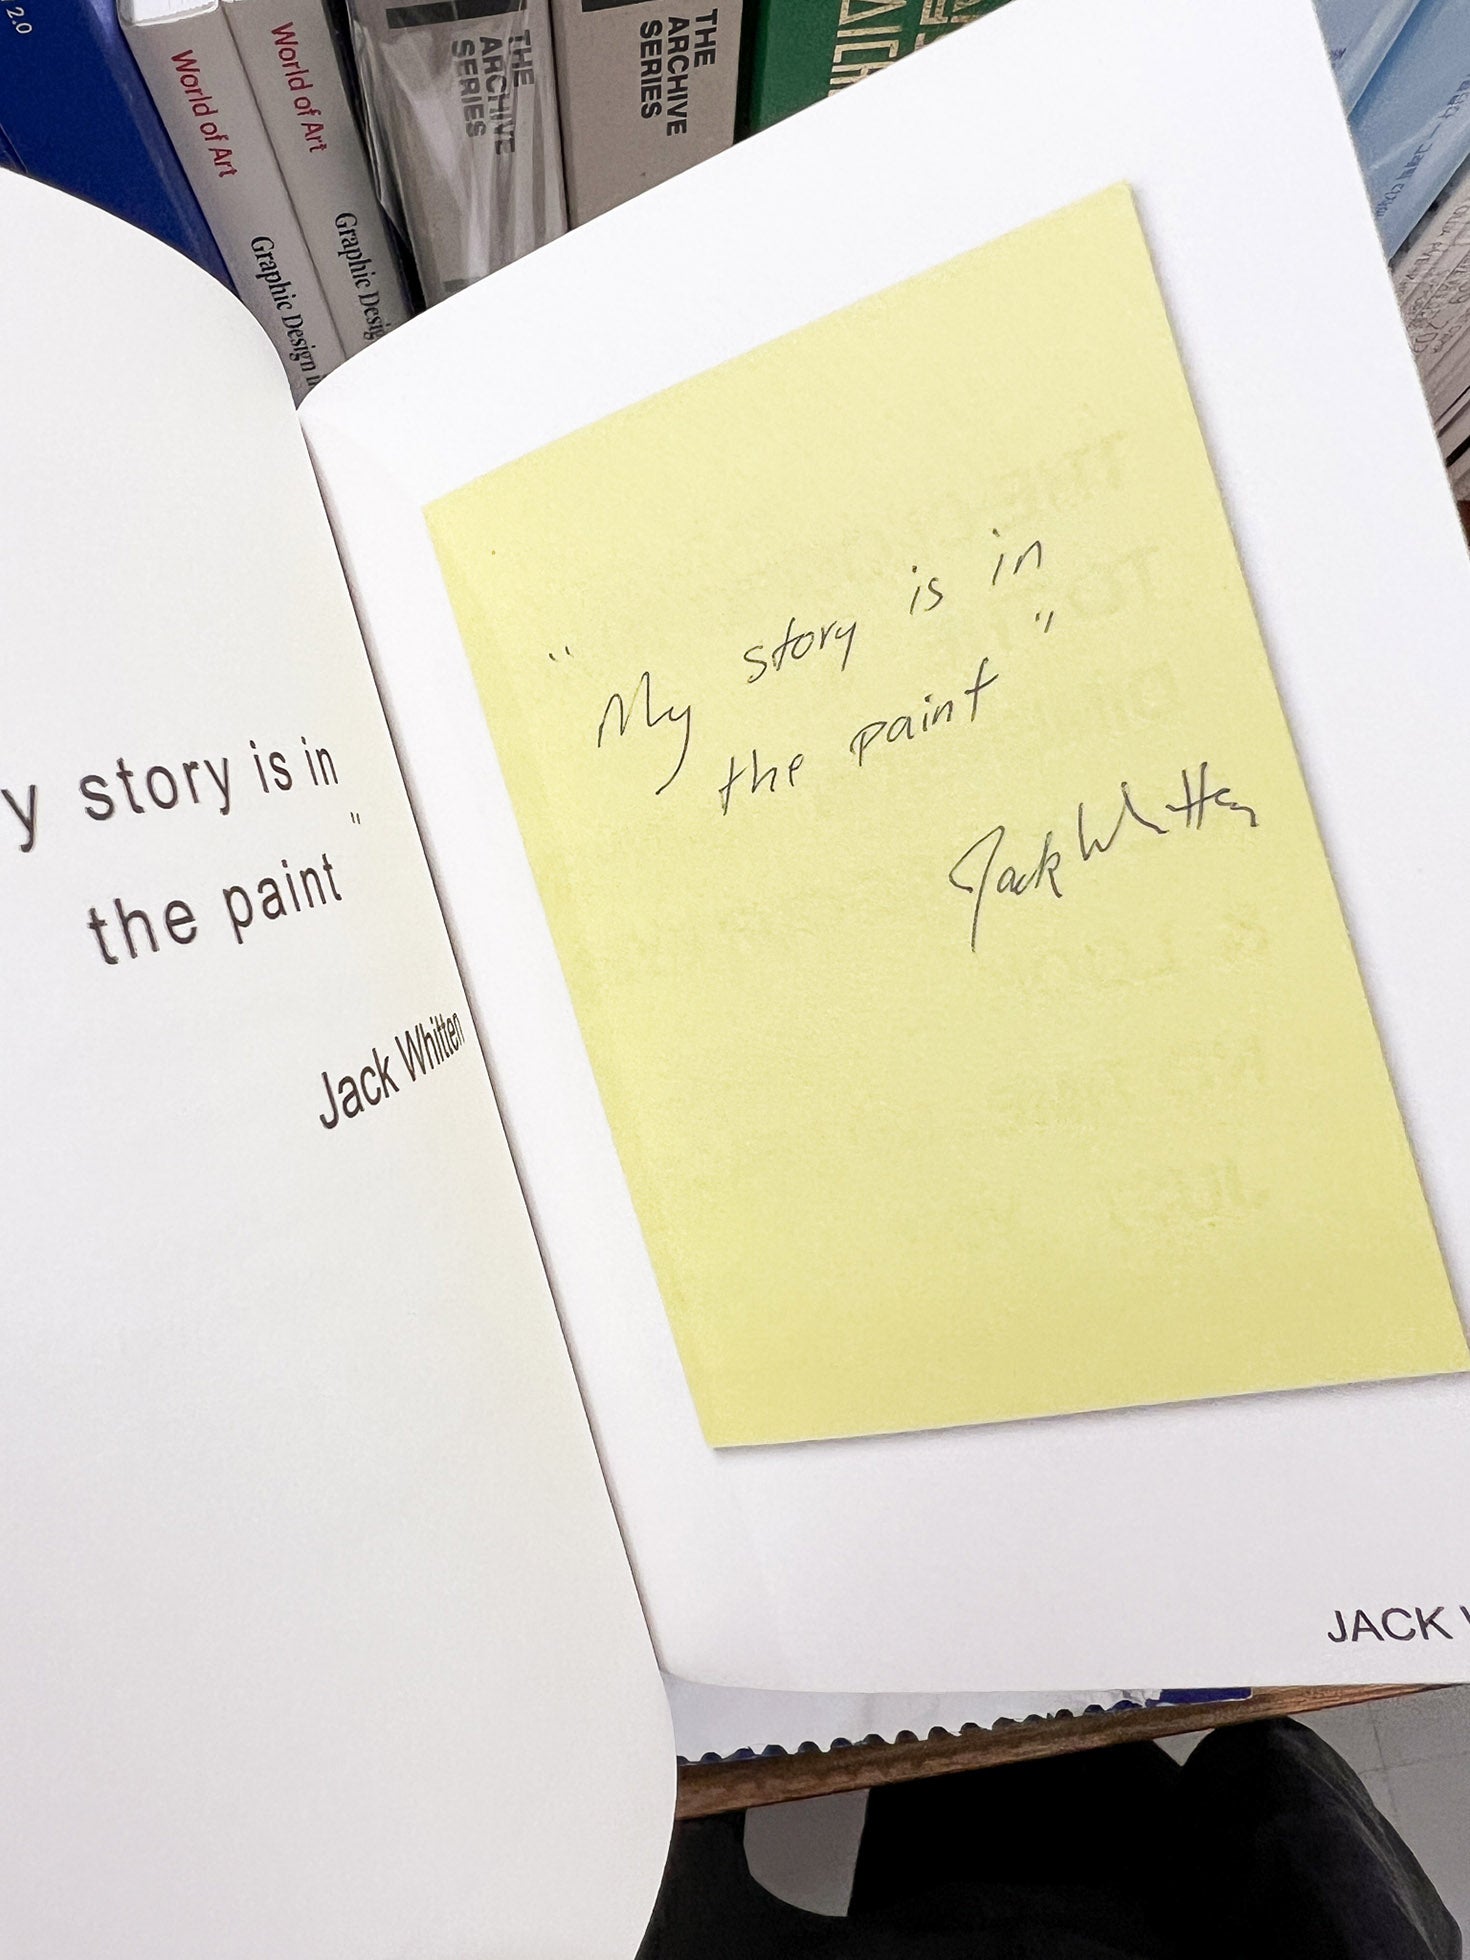 2.0
World of Art
Graphic Design
World of Art
Graphic
THE
ARCHIVE
SERIES
THE
ARCHIVE
SERIES
y story is in
the paint"
Jack Whitten
"My story is in
the paint"
Jack Whitten
JACK